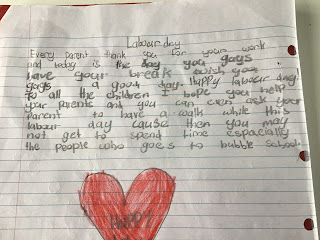 Labour day
Every parent thank you for your work
and today is the day you gays
have your break I wish you
gays a good day. Happy labour day!
To all the children I hope you help
your parents and you can even ask your
parent to have a walk while this
labour day cause then you may
not get to spend time espacially
the people who goes to bubble school.
Happy